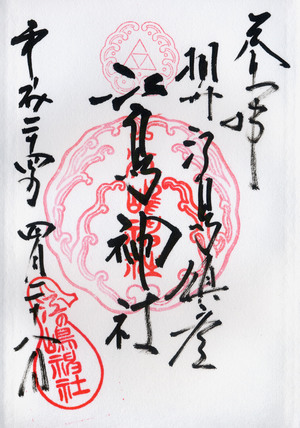 奉拝
相州江の島鎮座
江島神社
平成二十四年四月二十八日
江の嶋神社